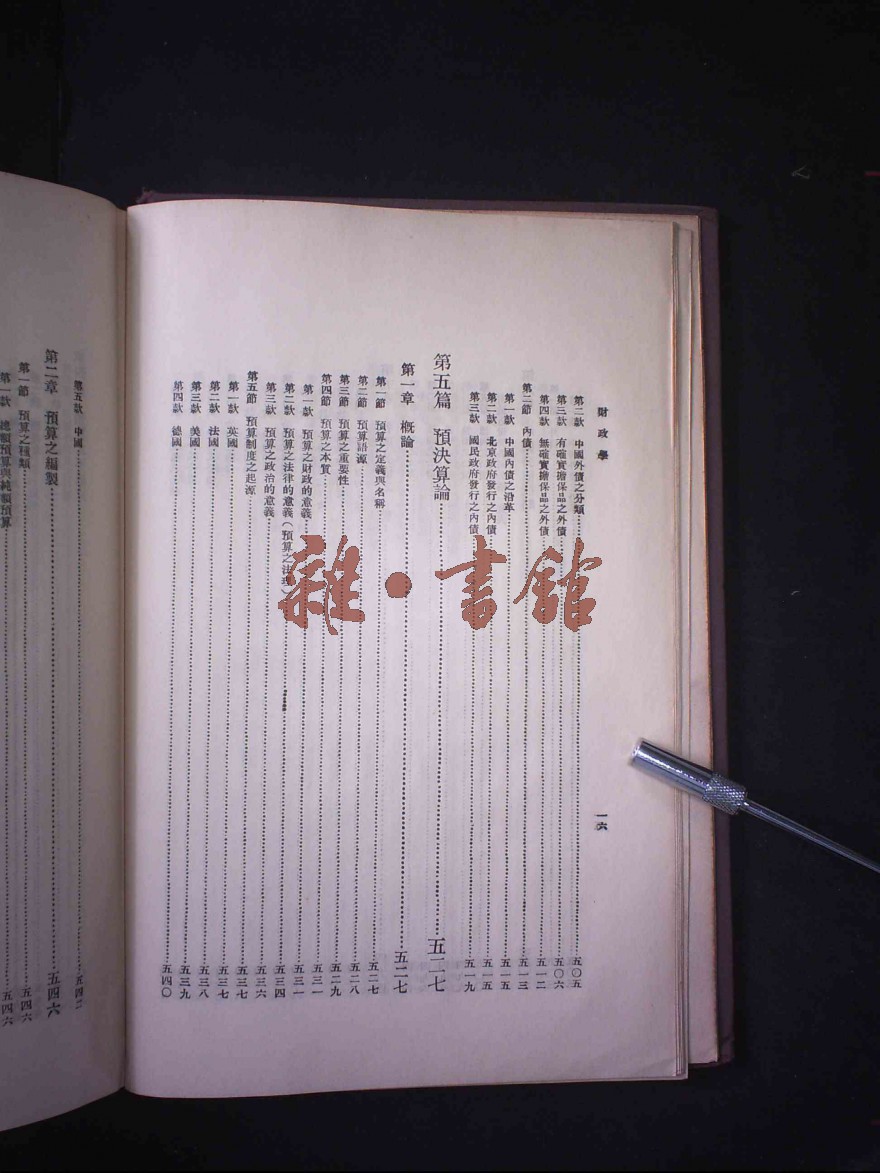 財政學
第二款 中國外債之分類……五〇五
第三款 有確實擔保品之外債……五〇六
第四款 無確實擔保品之外債……五一二
第二節 內債……五一三
第一款 中國內債之沿革……五一五
第二款 北京政府發行之內債……五一五
第三款 國民政府發行之內債……五一九
第五篇 預決算論……五二七
第一章 概論……五二七
第一節 預算之定義與名稱……五二七
第二節 預算語源……五二八
第三節 預算之重要性……五二九
第四節 預算之本質……五三一
第一款 預算之財政的意義……五三一
第二款 預算之法律的意義(預算之法理)……五三四
第三款 預算之政治的意義……五三六
第五節 預算制度之起源……五三七
第一款 英國……五三七
第二款 法國……五三八
第三款 美國……五三九
第四款 德國……五四〇
一六
第五款 中國……五四二
第二章 預算之編製……五四六
第一節 預算之種類……五四六
第一款 總額預算與純額預算……五四六
雜·書館